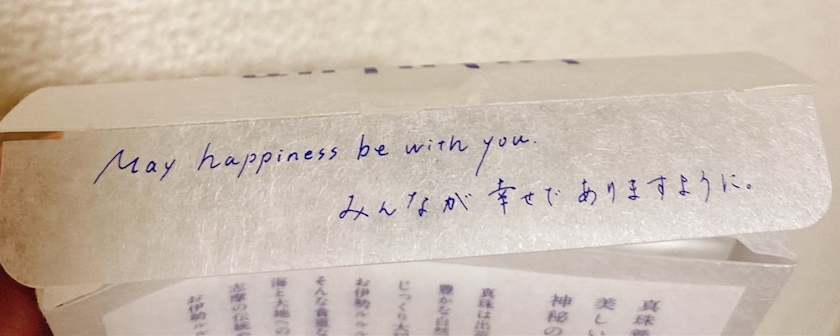 May happiness be with you.
みんなが幸せでありますように。
真珠
美しい
神秘の
真珠は出
豊かな自然
じっくり大
お伊勢ルルル
そんな貴重な
海と大地への
志摩の伝統
お伊勢ル